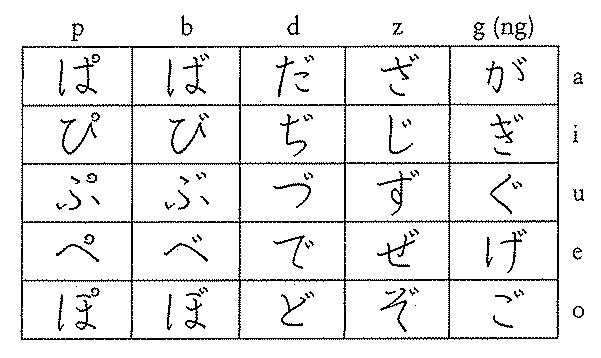 p b d z g (ng)
ぱ ば だ ざ が a
ぴ び ぢ じ ぎ i
ぷ ぶ づ ず ぐ u
ぺ べ で ぜ げ e
ぽ ぼ ど ぞ ご o